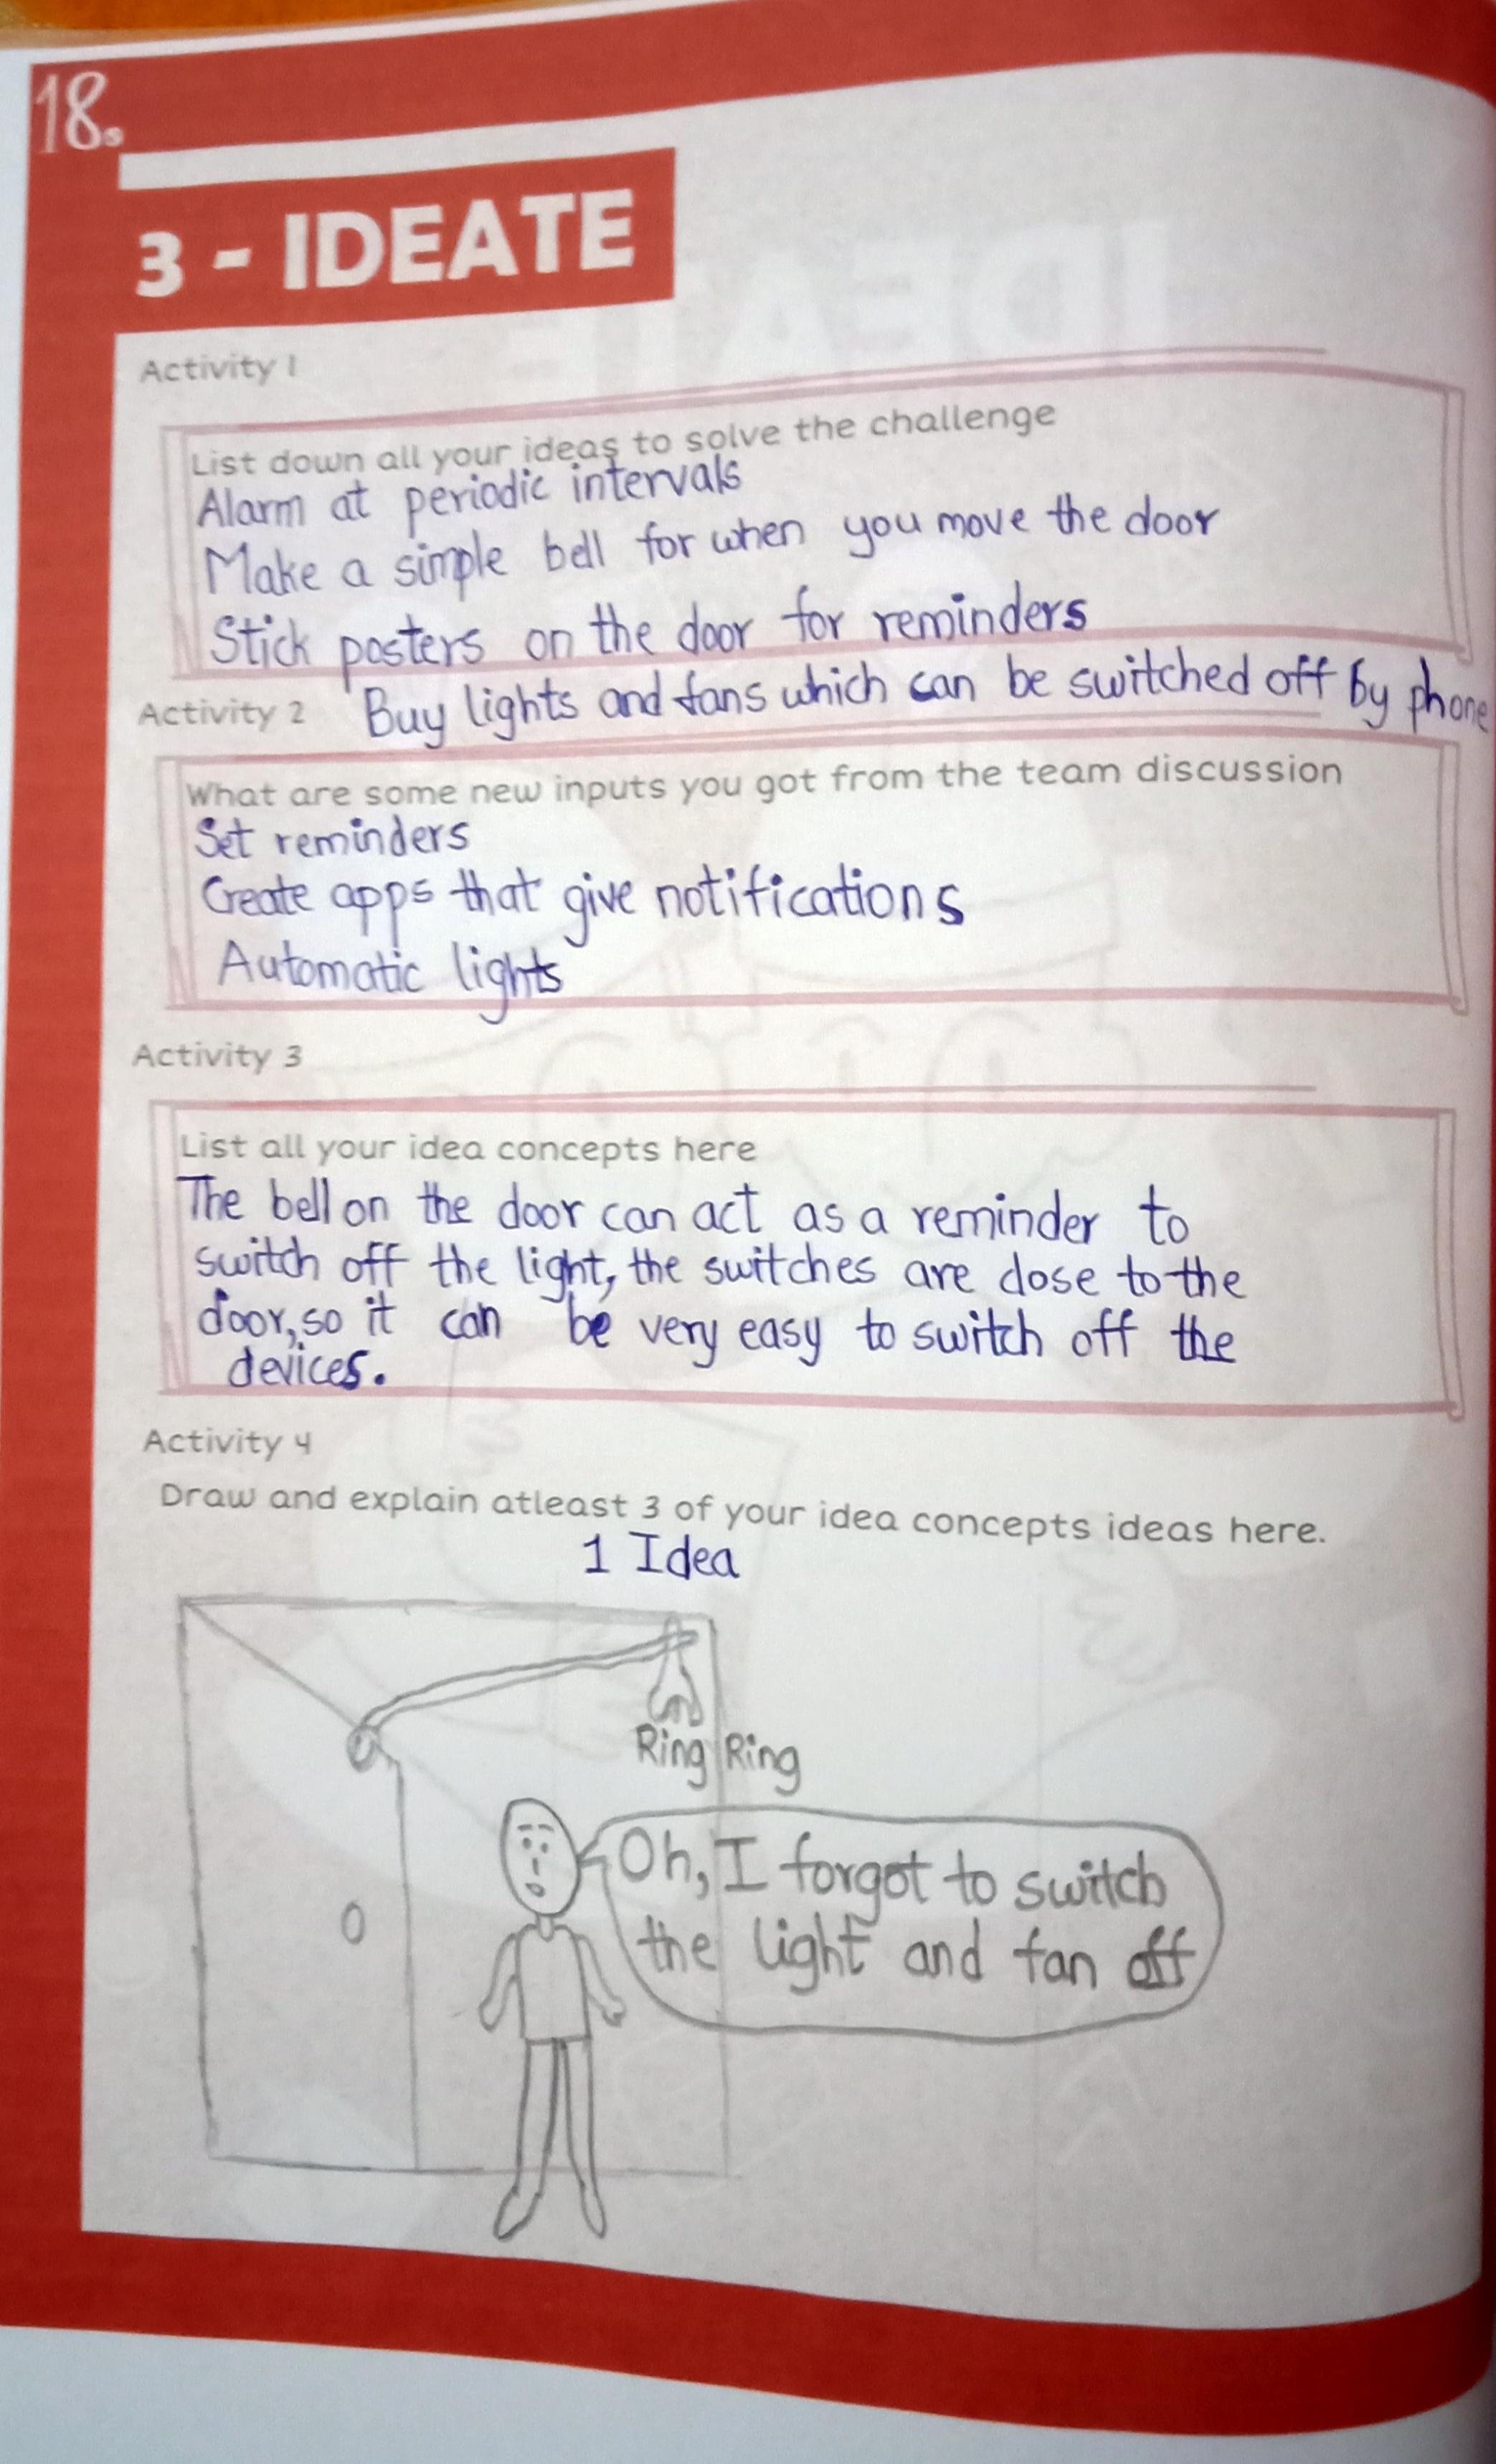 18.
3 - IDEATE
Activity 1
List down all your ideas to solve the challenge
Alarm at periodic intervals
Make a simple bell for when you move the door
Stick posters on the door for reminders
Buy lights and fans which can be switched off by phone
Activity 2
What are some new inputs you got from the team discussion
Set reminders
Create apps that give notifications
Automatic lights
Activity 3
List all your idea concepts here
The bell on the door can act as a reminder to
switch off the light, the switches are close to the
door, so it can be very easy to switch off the
devices.
Activity 4
Draw and explain atleast 3 of your idea concepts ideas here.
1 Idea
Ring Ring
Oh, I forgot to switch
the light and fan off